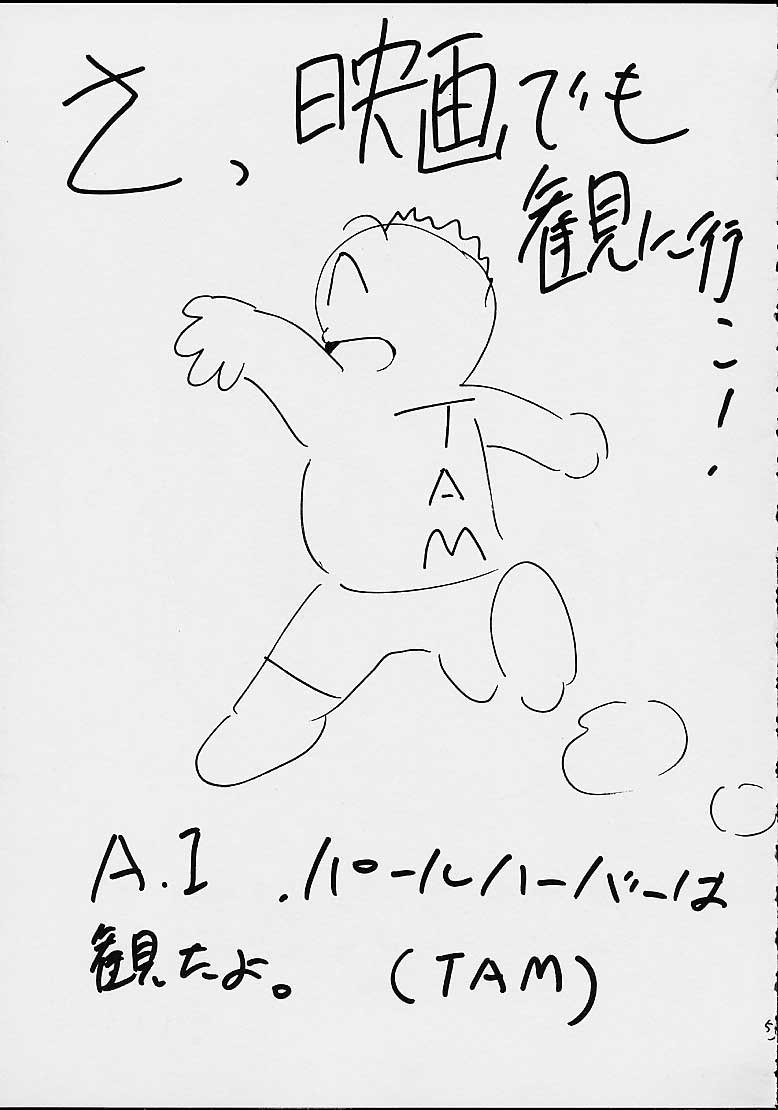 さ、映画でも
観に行こー!
TAM
A.I .パールハーバーは
観たよ。 (TAM)